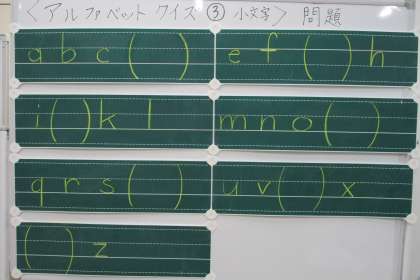 ＜アルファベットクイズ③小文字＞ 問題
a b c ( )
e f ( ) h
i ( ) k l
m n o ( )
q r s ( )
u v ( ) x
( ) z